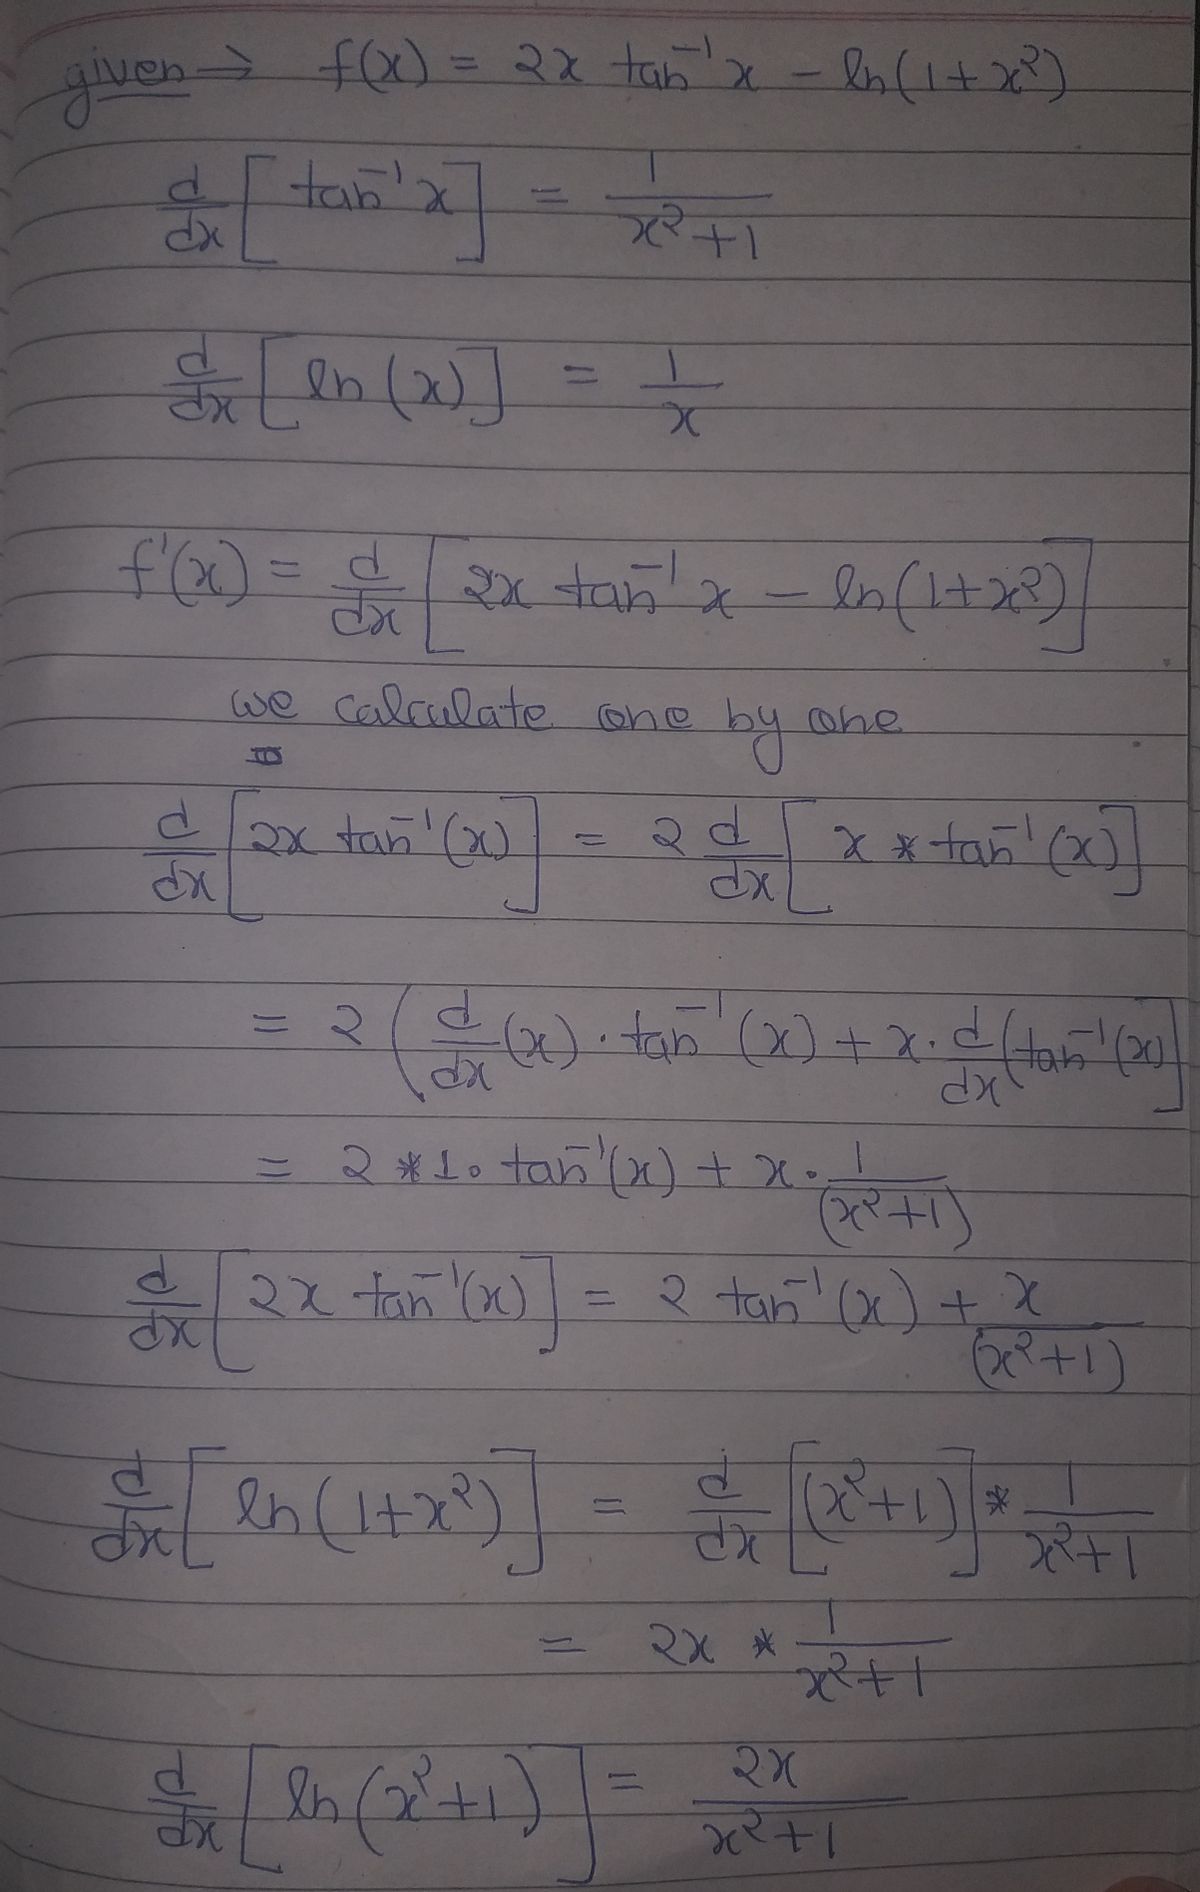 given → f(x) = 2x tan⁻¹x − ln(1+x²)
d/dx [tan⁻¹x] = 1/(x²+1)
d/dx [ln(x)] = 1/x
f'(x) = d/dx [2x tan⁻¹x − ln(1+x²)]
we calculate one by one
d/dx [2x tan⁻¹(x)] = 2 d/dx [x * tan⁻¹(x)]
= 2 (d/dx (x) · tan⁻¹(x) + x · d/dx (tan⁻¹(x)]
= 2 * 1 · tan⁻¹(x) + x · 1/(x²+1)
d/dx [2x tan⁻¹(x)] = 2 tan⁻¹(x) + x/(x²+1)
d/dx [ln(1+x²)] = d/dx [(x²+1)] * 1/x²+1
= 2x * 1/x²+1
d/dx [ln(x²+1)] = 2x/x²+1